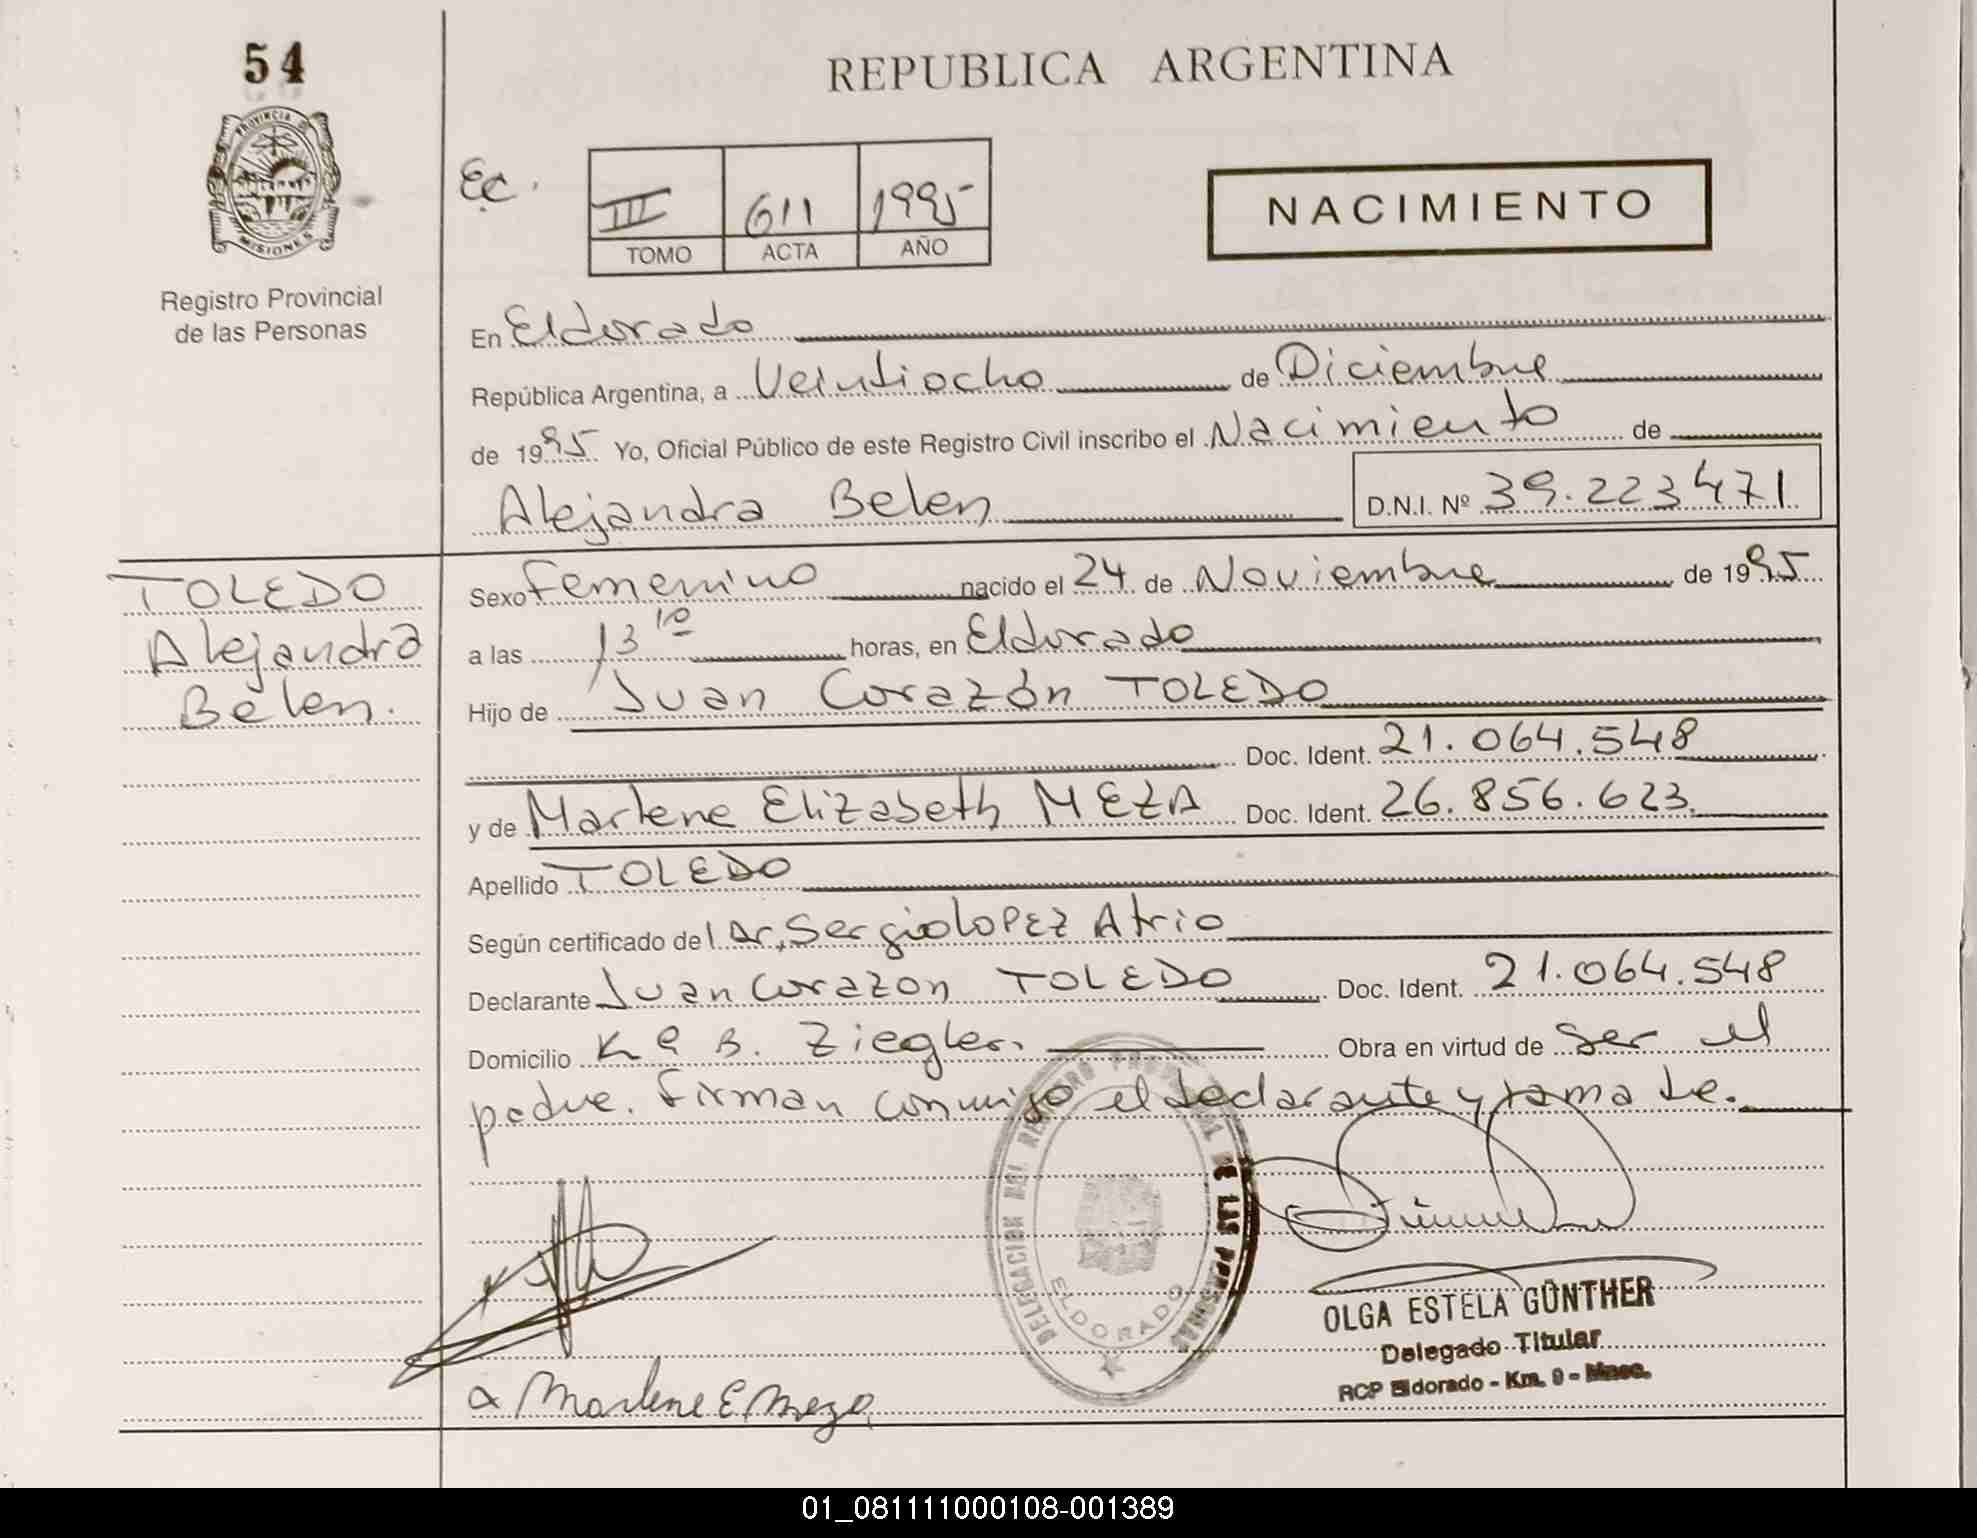 54
REPUBLICA ARGENTINA
PROVINCIA DE
MISIONES
Registro Provincial
de las Personas
Ec.
III 611 1995
TOMO ACTA AÑO
NACIMIENTO
En Eldorado
República Argentina, a Veintiocho de Diciembre
de 1995 Yo, Oficial Público de este Registro Civil inscribo el Nacimiento de
Alejandra Belen D.N.I. Nº 39.223471
TOLEDO
Alejandra
Belen.
Sexo Femenino nacido el 24 de Noviembre de 1995
a las 13 10 horas, en Eldorado
Hijo de Juan Corazón TOLEDO
Doc. Ident. 21.064.548
y de Marlene Elizabeth MEZA Doc. Ident. 26.856.623.
Apellido TOLEDO
Según certificado del Dr, Sergio LOPEZ Atrio
Declarante Juan Corazon TOLEDO Doc. Ident. 21.064.548
Domicilio K 9 B. Ziegler. Obra en virtud de ser el
padre. Firman conmigo el declarante y la madre.
DELEGACION DEL REGISTRO PROVINCIAL DE LAS PERSONAS
ELDORADO
OLGA ESTELA GÜNTHER
Delegado Titular
RCP Eldorado - Km. 9 - Mnes.
Marlene E. Meza
01_081111000108-001389